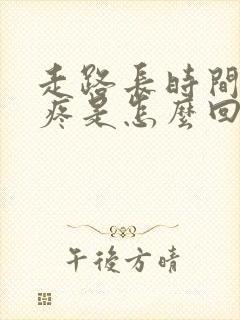 走路長時間
疼是怎麼回
午後方晴